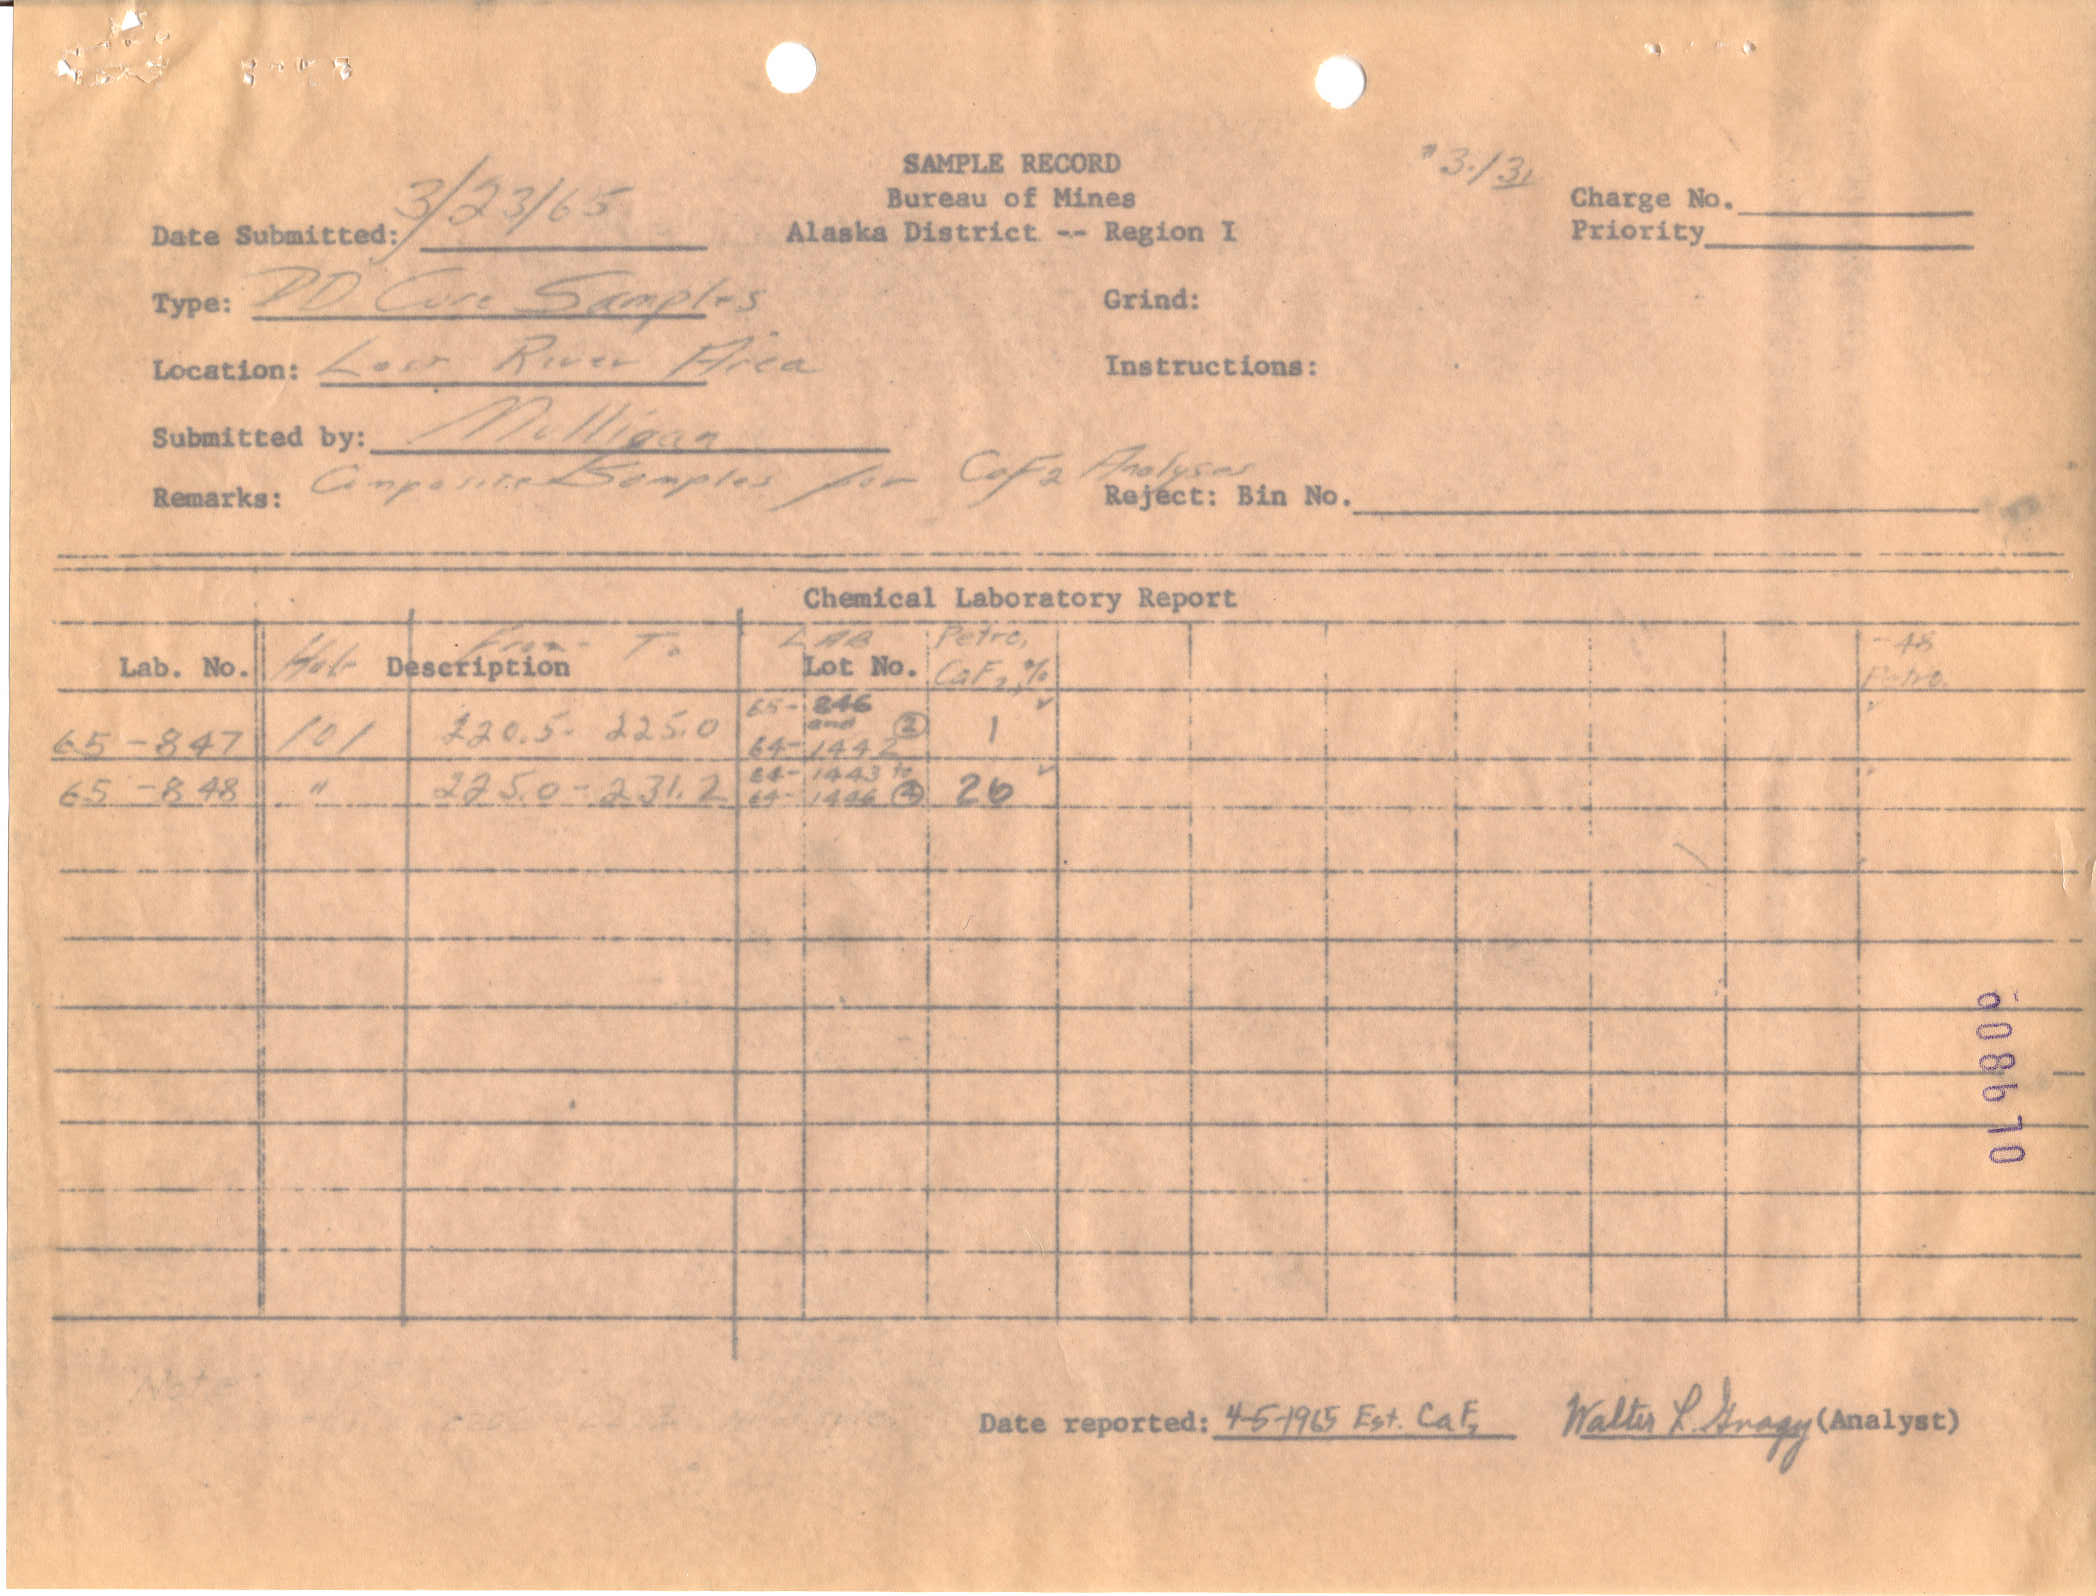 SAMPLE RECORD
3/31
Bureau of Mines
Charge No.
Date Submitted: 3/23/65
Alaska District -- Region I
Priority
Type: DD Core Samples
Grind:
Location: Lost River Area
Instructions:
Submitted by: Mulligan
Remarks: Composite Samples for CaF2 Analyses
Reject: Bin No.
Chemical Laboratory Report
Lab. No. Hole Description From - To LAB Lot No. Petro. CaF2, % -48 Petro.
65-847 101 220.5 - 225.0 65-846 and 64-1442 ② 1 ✓
65-848 " 225.0 - 231.2 64-1443 to 64-1446 ④ 26 ✓
Note
Date reported: 4-5-1965 Est. CaF2 Walter L. Gnagy (Analyst)